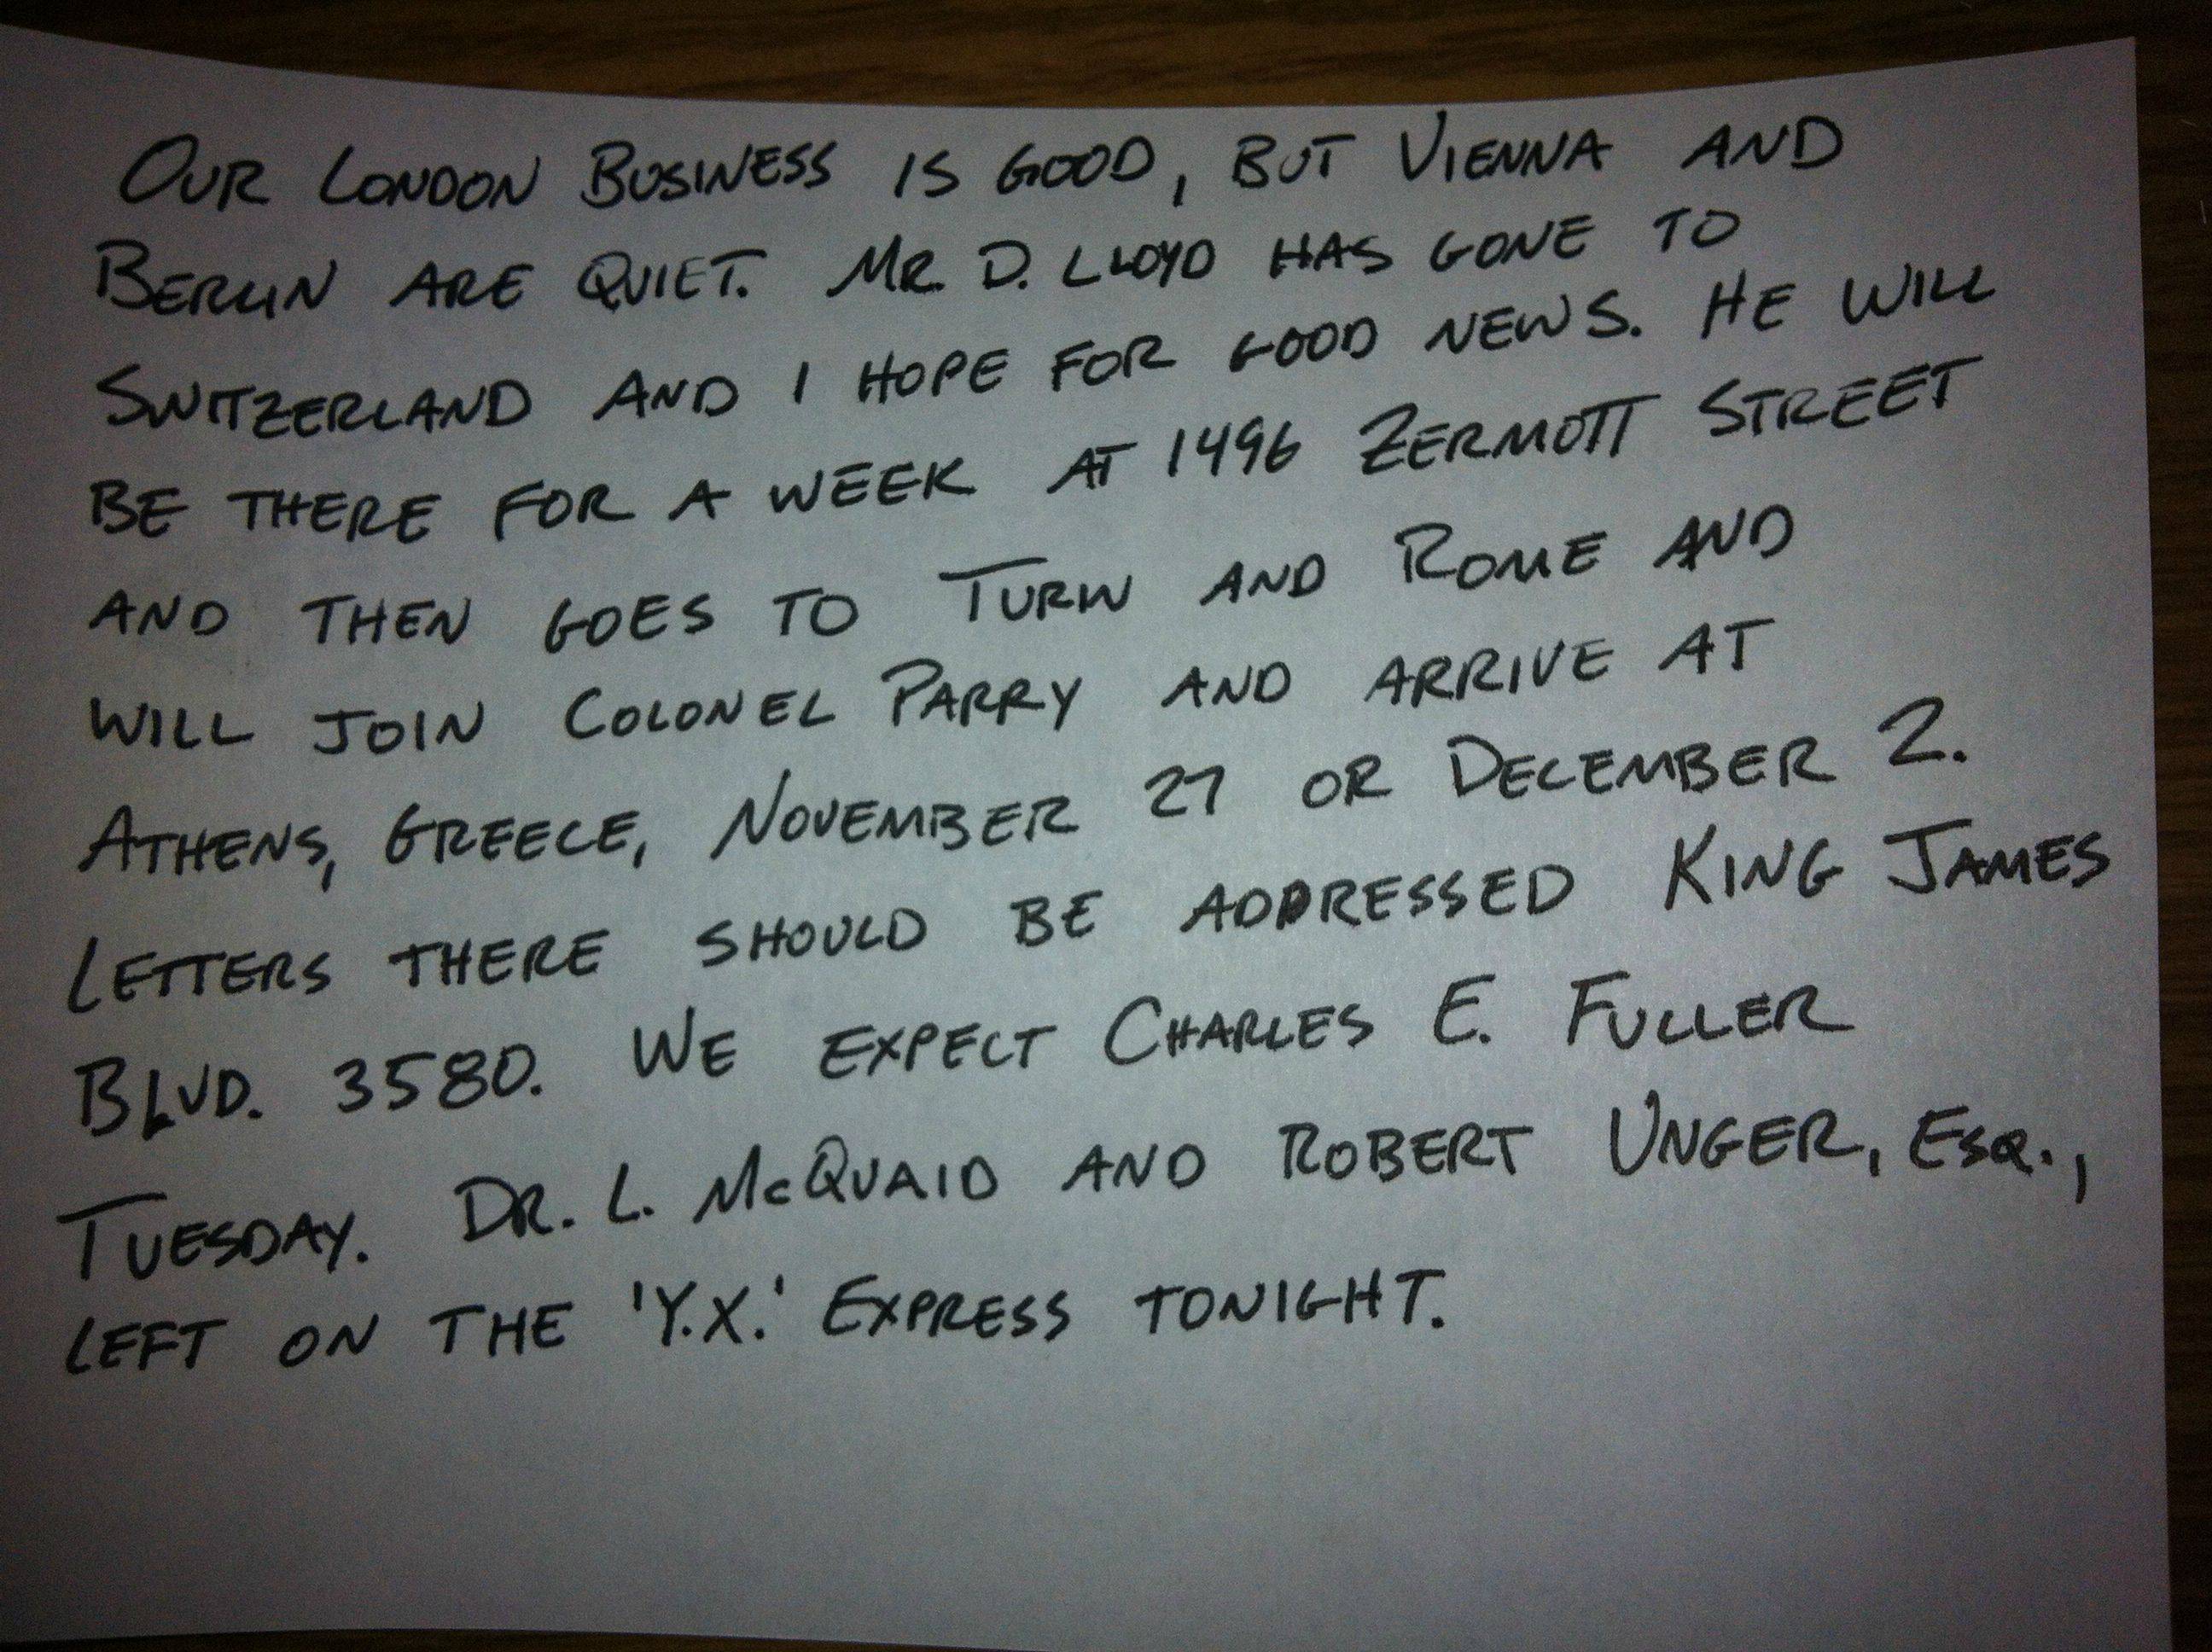 OUR LONDON BUSINESS IS GOOD, BUT VIENNA AND
BERLIN ARE QUIET. MR. D. LLOYD HAS GONE TO
SWITZERLAND AND I HOPE FOR GOOD NEWS. HE WILL
BE THERE FOR A WEEK AT 1496 ZERMOTT STREET
AND THEN GOES TO TURIN AND ROME AND
WILL JOIN COLONEL PARRY AND ARRIVE AT
ATHENS, GREECE, NOVEMBER 27 OR DECEMBER 2.
LETTERS THERE SHOULD BE ADDRESSED KING JAMES
BLVD. 3580. WE EXPECT CHARLES E. FULLER
TUESDAY. DR. L. McQUAID AND ROBERT UNGER, ESQ.,
LEFT ON THE 'Y.X.' EXPRESS TONIGHT.